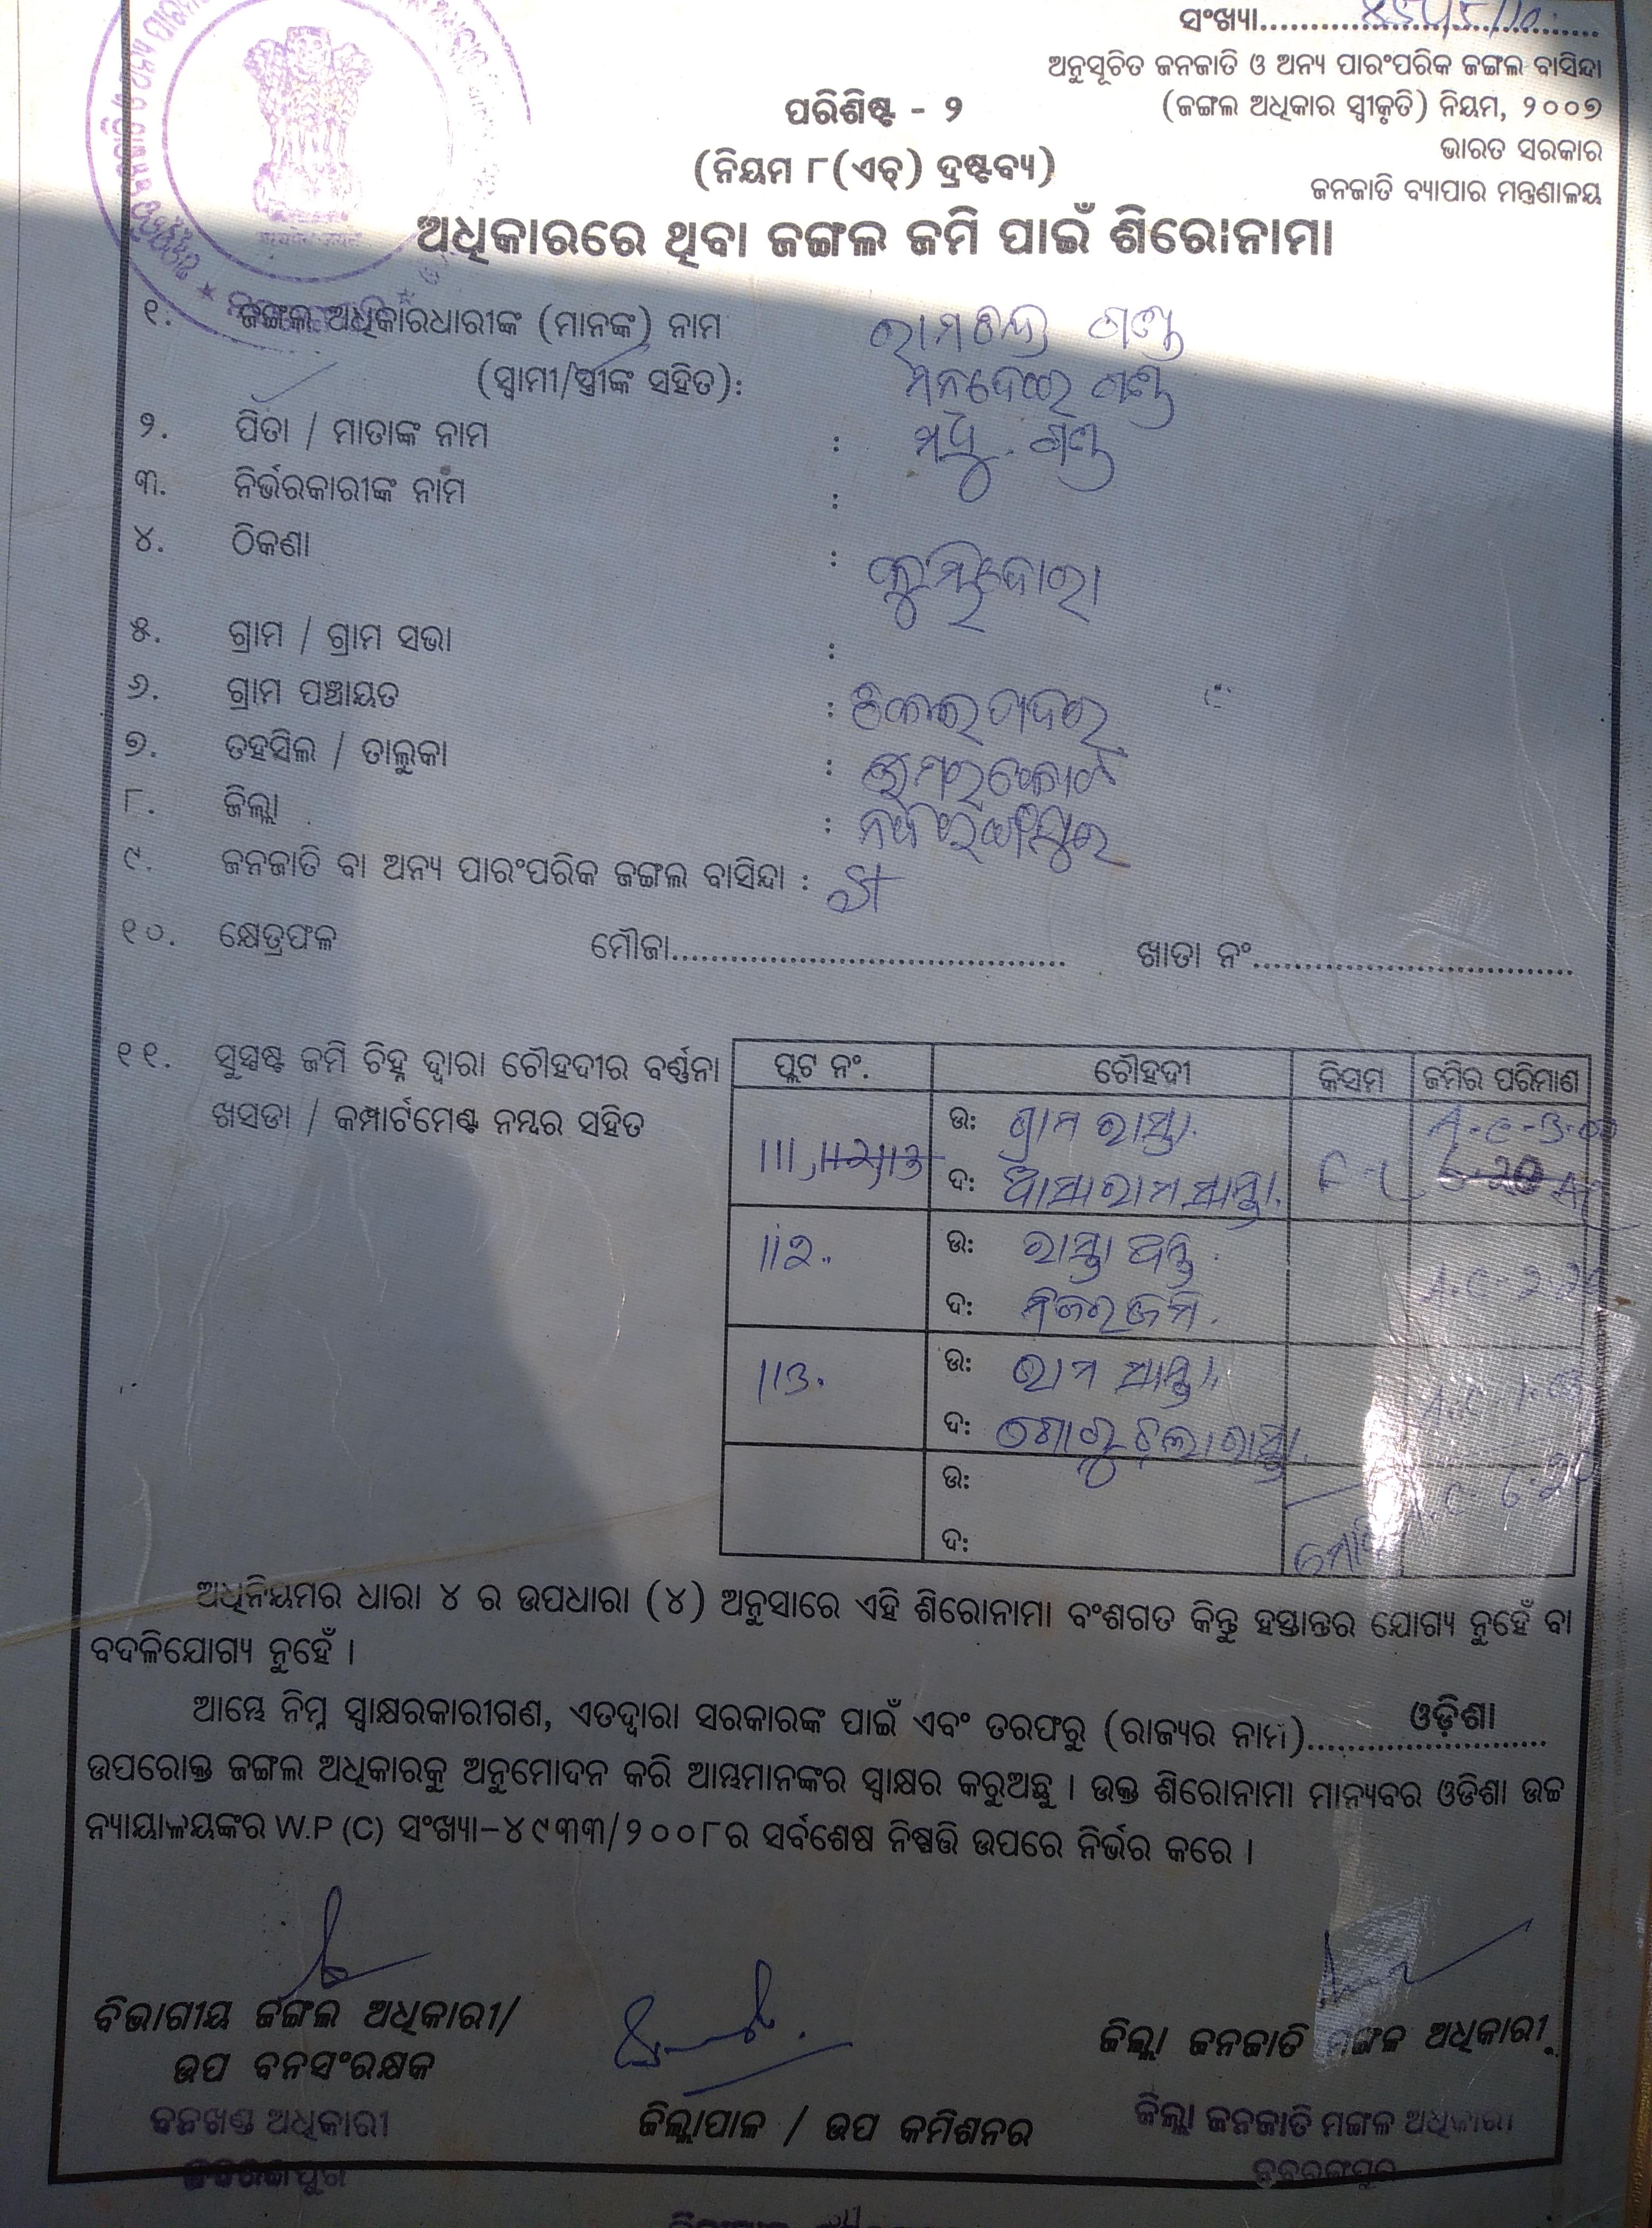 ସଂଖ୍ୟା
ଅନୁସୂଚିତ ଜନଜାତି ଓ ଅନ୍ୟ ପାରଂପରିକ ଜଙ୍ଗଲ ବାସିନ୍ଦା
(ଜଙ୍ଗଲ ଅଧିକାର ସ୍ୱୀକୃତି) ନିୟମ, ୨୦୦୭
ଭାରତ ସରକାର
ଜନଜାତି ବ୍ୟାପାର ମନ୍ତ୍ରଣାଳୟ
ପରିଶିଷ୍ଟ - ୨
(ନିୟମ ୮(ଏଚ୍) ଦ୍ରଷ୍ଟବ୍ୟ)
ଅଧିକାରରେ ଥିବା ଜଙ୍ଗଲ ଜମି ପାଇଁ ଶିରୋନାମା
୧. ଜଙ୍ଗଲ ଅଧିକାରଧାରୀଙ୍କ (ମାନଙ୍କ) ନାମ ରାମଚନ୍ଦ୍ର ଗଣ୍ଡ
(ସ୍ୱାମୀ/ସ୍ତ୍ରୀଙ୍କ ସହିତ): ମନଦେଇ ଗଣ୍ଡ
୨. ପିତା / ମାତାଙ୍କ ନାମ : ମଧୁ ଗଣ୍ଡ
୩. ନିର୍ଭରକାରୀଙ୍କ ନାମ :
୪. ଠିକଣା :
୫. ଗ୍ରାମ / ଗ୍ରାମ ସଭା :
୬. ଗ୍ରାମ ପଞ୍ଚାୟତ :
୭. ତହସିଲ / ତାଲୁକା : ଉମରକୋଟ
୮. ଜିଲ୍ଲା : ନବରଙ୍ଗପୁର
୯. ଜନଜାତି ବା ଅନ୍ୟ ପାରଂପରିକ ଜଙ୍ଗଲ ବାସିନ୍ଦା : ST
୧୦. କ୍ଷେତ୍ରଫଳ ମୌଜା........ ଖାତା ନଂ........
୧୧. ସୁସ୍ପଷ୍ଟ ଜମି ଚିହ୍ନ ଦ୍ୱାରା ଚୌହଦୀର ବର୍ଣ୍ଣନା
ଖସଡା / କମ୍ପାର୍ଟମେଣ୍ଟ ନମ୍ବର ସହିତ
ପ୍ଲଟ ନଂ. ଚୌହଦୀ କିସମ ଜମିର ପରିମାଣ
111, ଉ: ଗ୍ରାମ ରାସ୍ତା.
ଦ: ଆସାରାମ ସାନ୍ତା.
11୨. ଉ: ରାସ୍ତା
ଦ: ନିଜର ଜମି.
11୩. ଉ: ରାମ ସାନ୍ତା.
ଦ: ଗୋରୁ ଚାଲା ରାସ୍ତା.
ଉ:
ଦ:
ଅଧିନିୟମର ଧାରା ୪ ର ଉପଧାରା (୪) ଅନୁସାରେ ଏହି ଶିରୋନାମା ବଂଶଗତ କିନ୍ତୁ ହସ୍ତାନ୍ତର ଯୋଗ୍ୟ ନୁହେଁ ବା
ବଦଳିଯୋଗ୍ୟ ନୁହେଁ ।
ଆମ୍ଭେ ନିମ୍ନ ସ୍ୱାକ୍ଷରକାରୀଗଣ, ଏତଦ୍ୱାରା ସରକାରଙ୍କ ପାଇଁ ଏବଂ ତରଫରୁ (ରାଜ୍ୟର ନାମ)........ଓଡ଼ିଶା........
ଉପରୋକ୍ତ ଜଙ୍ଗଲ ଅଧିକାରକୁ ଅନୁମୋଦନ କରି ଆମ୍ଭମାନଙ୍କର ସ୍ୱାକ୍ଷର କରୁଅଛୁ । ଉକ୍ତ ଶିରୋନାମା ମାନ୍ୟବର ଓଡିଶା ଉଚ୍ଚ
ନ୍ୟାୟାଳୟଙ୍କର W.P (C) ସଂଖ୍ୟା-୪୯୩୩/୨୦୦୮ର ସର୍ବଶେଷ ନିଷ୍ପତ୍ତି ଉପରେ ନିର୍ଭର କରେ ।
ବିଭାଗୀୟ ଜଙ୍ଗଲ ଅଧିକାରୀ/
ଉପ ବନସଂରକ୍ଷକ
ବନଖଣ୍ଡ ଅଧିକାରୀ
ଜିଲ୍ଲାପାଳ / ଉପ କମିଶନର
ଜିଲ୍ଲା ଜନଜାତି ମଙ୍ଗଳ ଅଧିକାରୀ
ଜିଲ୍ଲା ଜନଜାତି ମଙ୍ଗଳ ଅଧିକାରୀ
ନବରଙ୍ଗପୁର